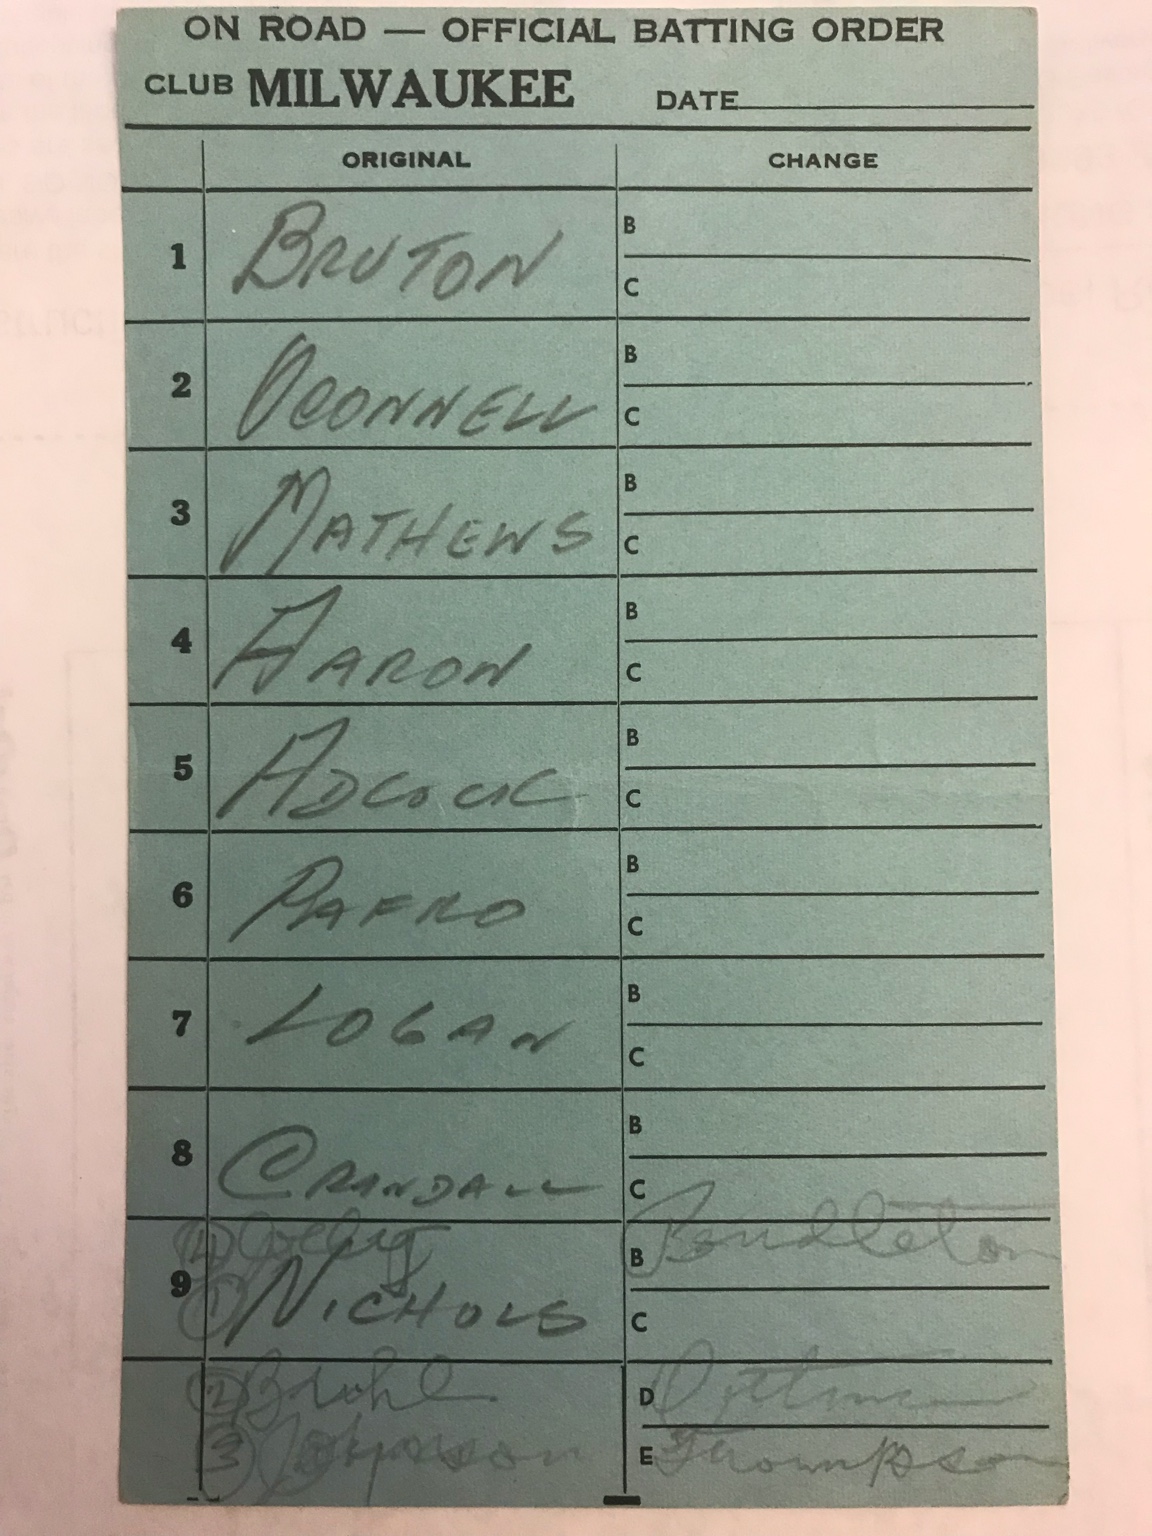 ON ROAD — OFFICIAL BATTING ORDER
CLUB MILWAUKEE DATE
ORIGINAL CHANGE
1 BRUTON B
C
2 OCONNELL B
C
3 MATHEWS B
C
4 AARON B
C
5 ADCOCK B
C
6 PAFKO B
C
7 LOGAN B
C
8 CRANDALL B
C
4 Pendleton
9 B
1 NICHOLS C
2 D
3 E Thompson